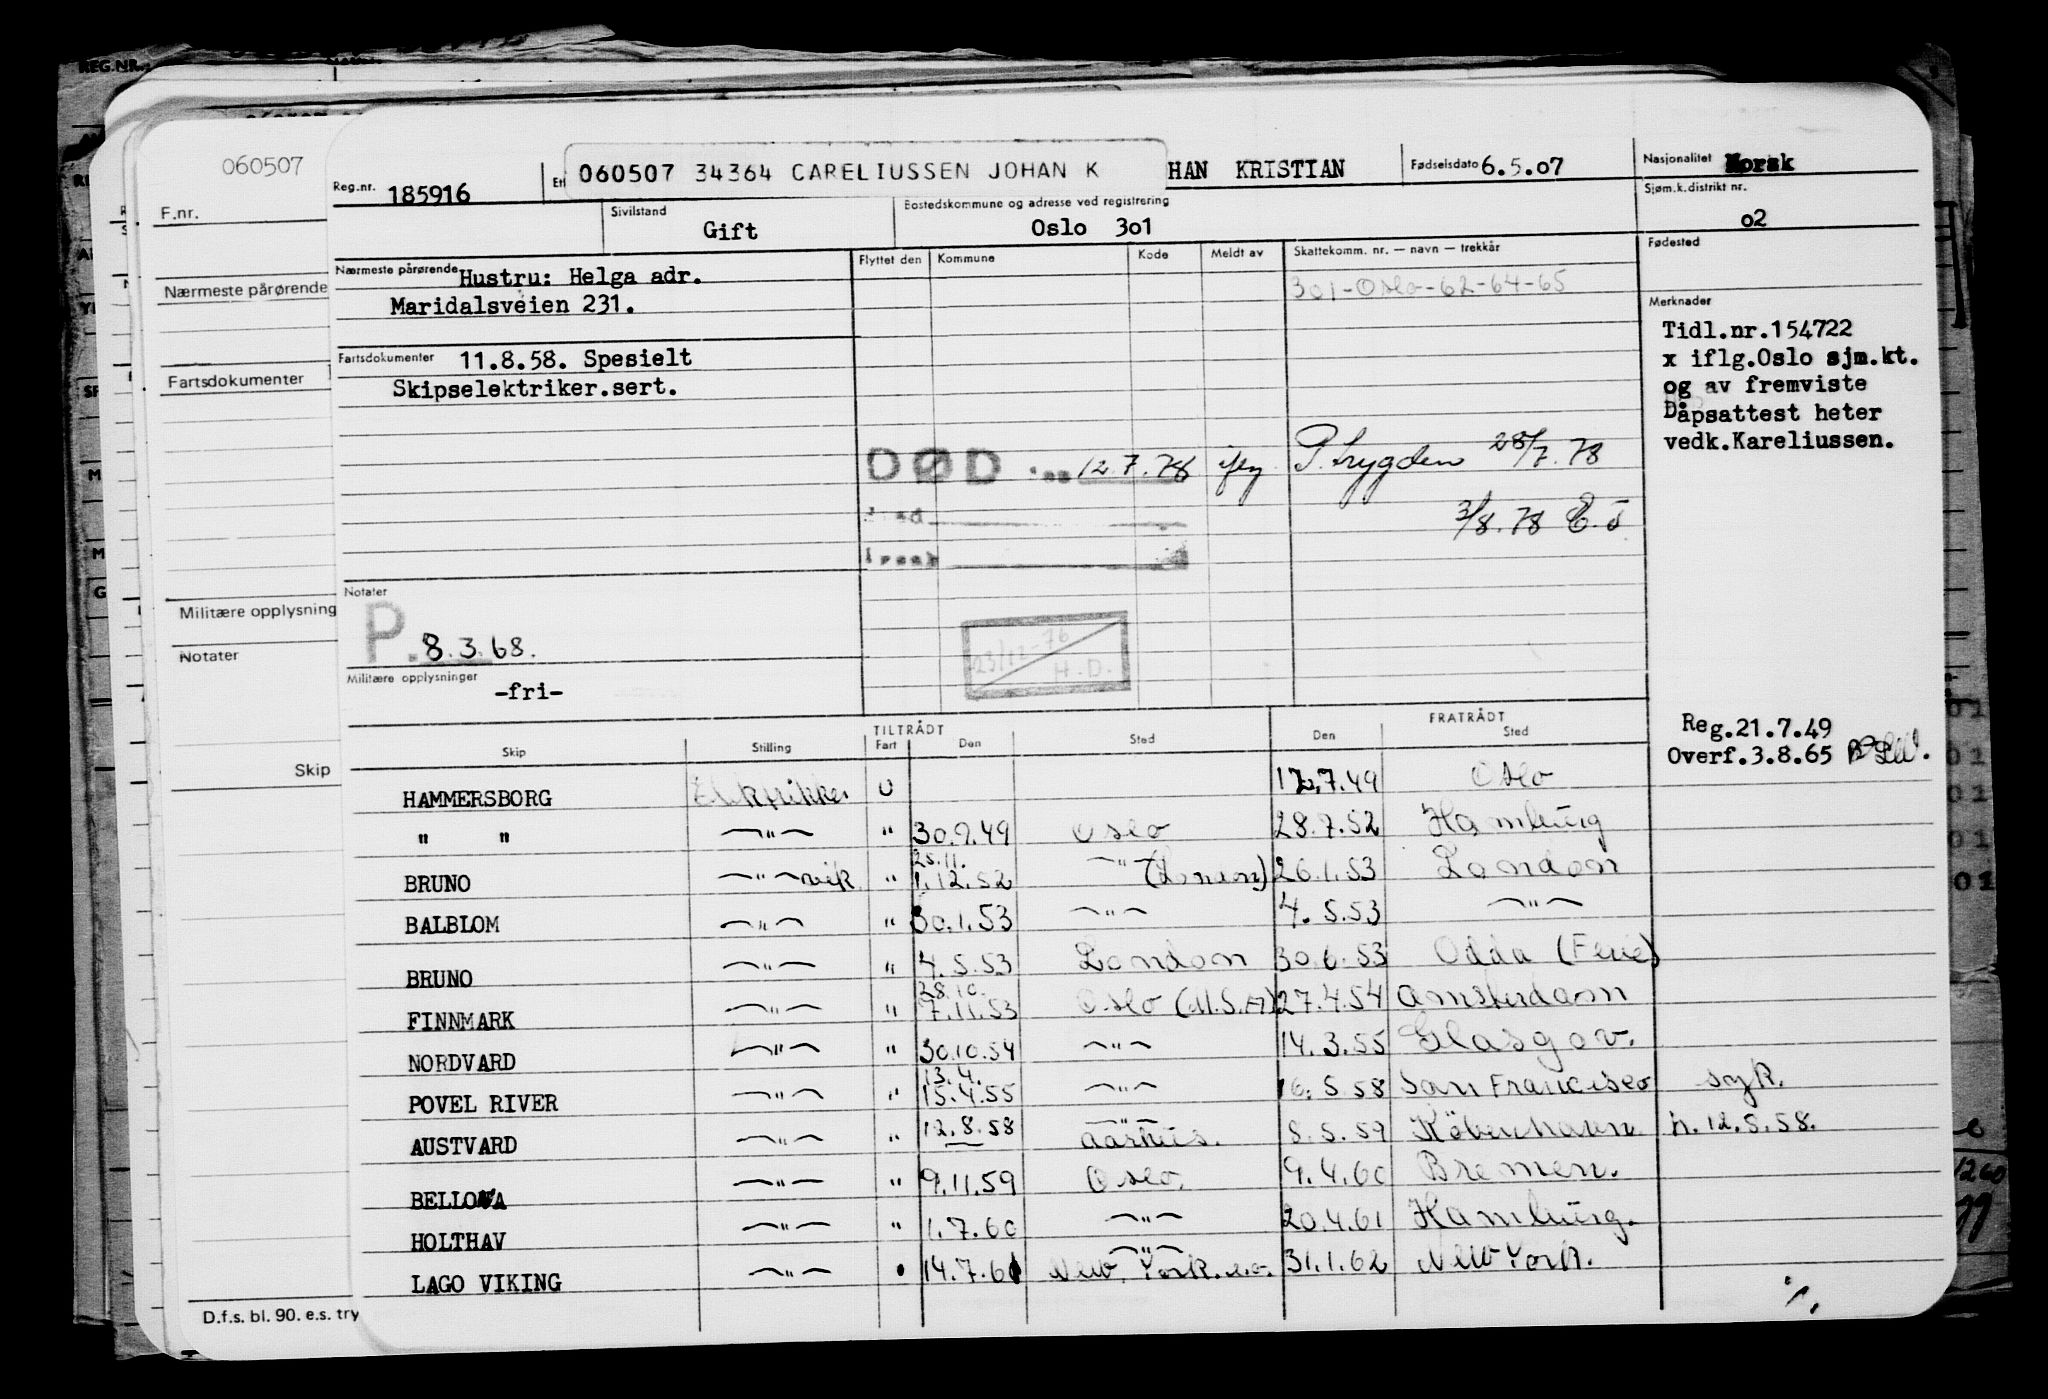 REG.NR.
060507
F.nr.
Nærmeste pårørende
Fartsdokumenter
Militære opplysning
Notater
Skip
D.f.s. bl. 90. e.s. try
Reg.nr. 185916
060507 34364 CARELIUSSEN JOHAN K HAN KRISTIAN
Fødselsdato 6.5.07
Nasjonalitet Norsk
Sivilstand Gift
Bostedskommune og adresse ved registrering Oslo 301
Sjøm.k.distrikt nr. 02
Nærmeste pårørende Hustru: Helga adr.
Maridalsveien 231.
Flyttet den Kommune Kode Meldt av Skattekomm. nr. — navn — trekkår
301-Oslo-62-64-65
Fødested
Merknader
Tidl.nr.154722
x iflg.Oslo sjm.kt.
og av fremviste
Dåpsattest heter
vedk.Kareliussen.
Fartsdokumenter 11.8.58. Spesielt
Skipselektriker.sert.
DØD 12.7.78 P.trygden 28/7.78
3/8.78 E.J
Notater
P. 8.3.68.
23/12-76
H.D.
Militære opplysninger -fri-
Reg.21.7.49
Overf.3.8.65
TILTRÅDT FRATRÅDT
Skip Stilling Fart Den Sted Den Sted
HAMMERSBORG Elektrikker U 12.7.49 Oslo
" " —"— " 30.9.49 Oslo 28.7.52 Hamburg
25.11.
BRUNO —"— vik. " 1.12.52 —"— 26.1.53 London
BALBLOM —"— " 30.1.53 —"— 4.5.53 —"—
BRUNO —"— " 4.5.53 London 30.6.53 Odda (Ferie)
28.10.
FINNMARK —"— " 7.11.53 Oslo (U.S.A) 27.4.54 Amsterdam
NORDVARD —"— " 30.10.54 —"— 14.3.55 Glasgov.
13.4.
POVEL RIVER —"— " 15.4.55 —"— 16.5.58 San Francisco syk.
AUSTVARD —"— " 12.8.58 Aarhus. 8.5.59 København h. 12.5.58.
BELLONA —"— " 9.11.59 Oslo. 9.4.60 Bremen.
HOLTHAV —"— " 1.7.60 —"— 20.4.61 Hamburg.
LAGO VIKING —"— " 14.7.61 New York. 31.1.62 New York.